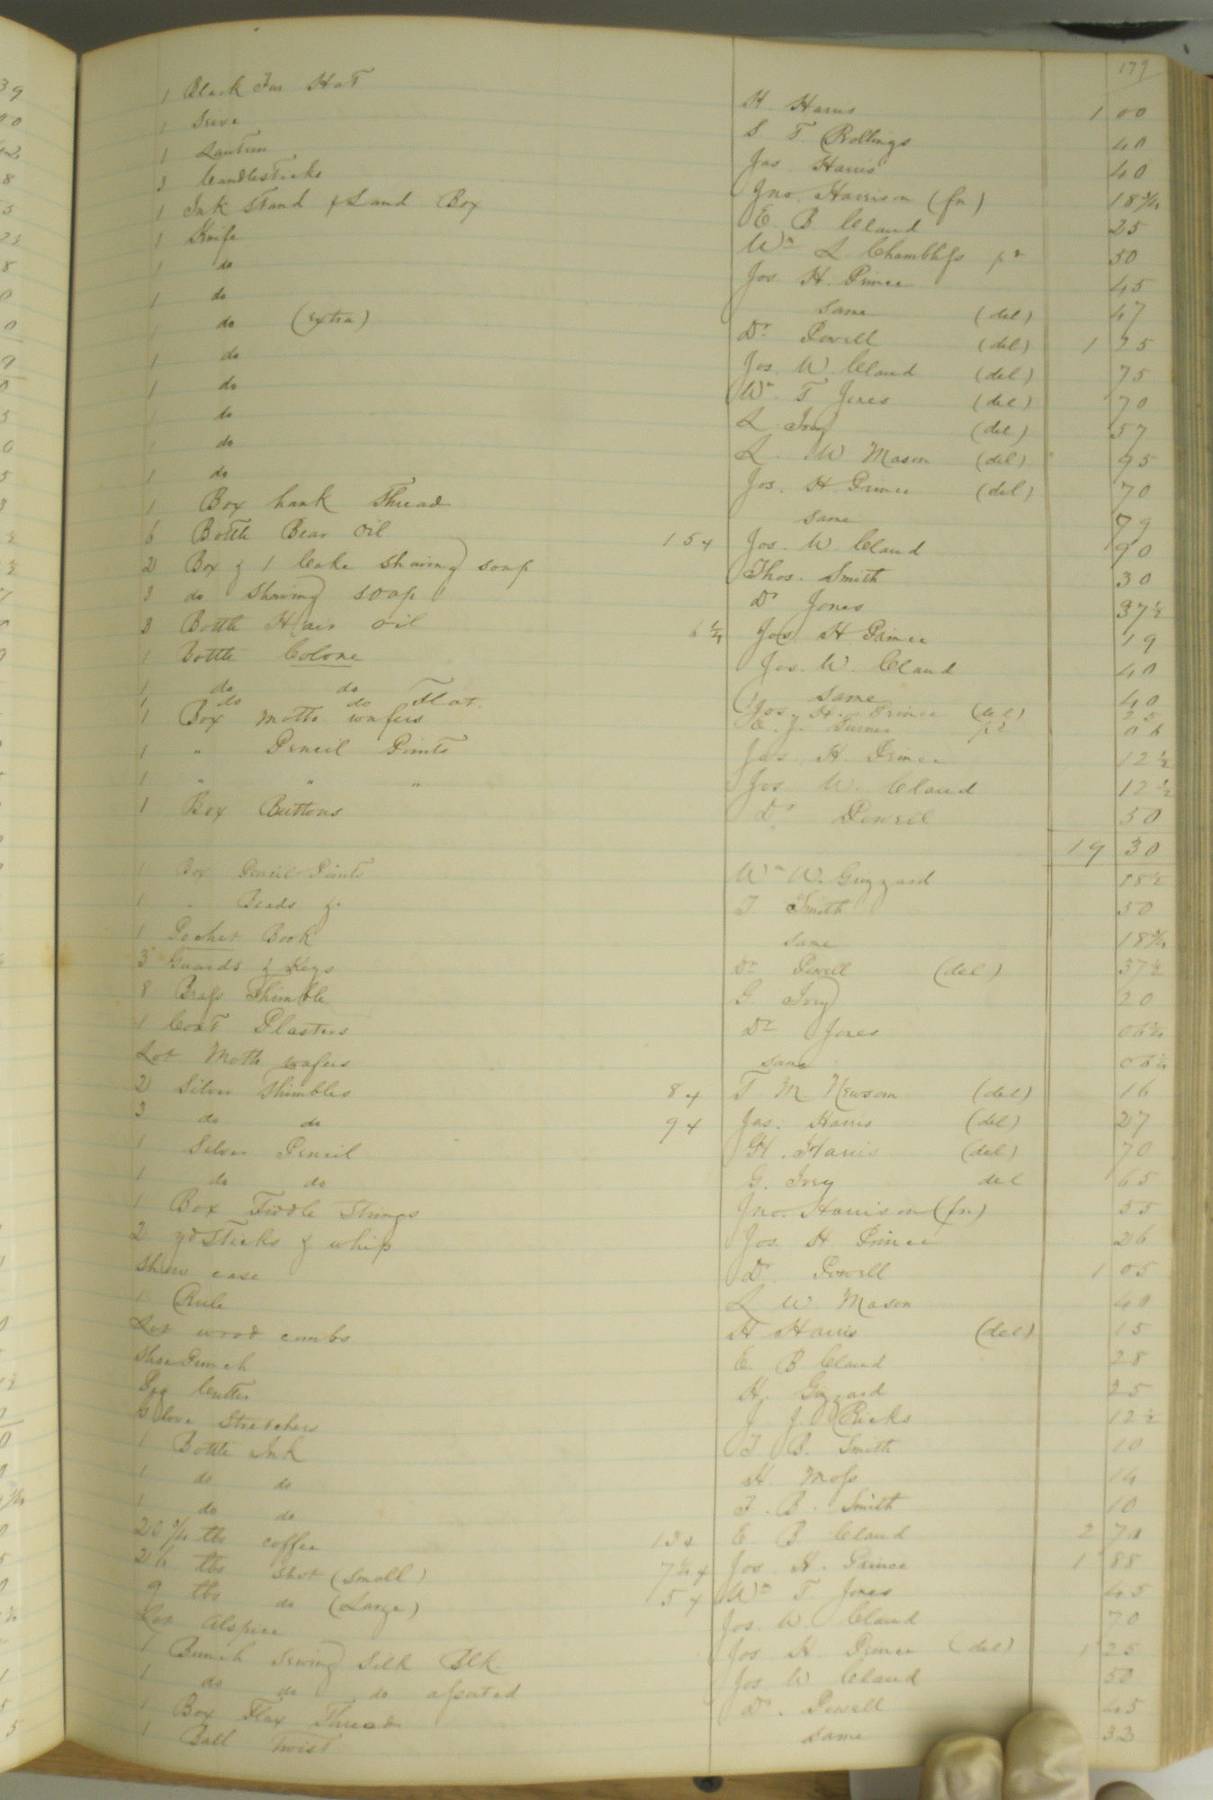 179
1 Black Fur Hat H. Harris 1 00
1 Sieve S T Rollings 40
1 Lantern Jas. Harris 40
2 Candlesticks Jno. Harrison (fn) 18 3/4
1 Ink Stand & Sand Box E. B Claud 25
1 Knife Wm L Chambliss 50
1 do Jos H. Prince 45
1 do same (del) 47
do (extra) Dr Powell (del) 1 25
1 do Jos. W. Claud (del) 75
1 do Wm T Jones (del) 70
1 do L Ivy (del) 57
do L. W Mason (del) 95
1 do Jos. H Prince (del) 70
1 Box hank Thread same 79
6 Bottle Bear Oil 15 + Jos. W. Claud 90
2 Box & 1 Cake shaving soap Thos. Smith 30
3 do Shaving soap Dr Jones 37 1/2
3 Bottle Hair Oil 6 1/4 Jos H Prince 19
1 Bottle Colone Jos. W. Claud 40
1 do do same 40
1 do do Flat. Jos. H. Prince (del) 25
1 Box Motto wafers E. J. Turner 06
1 " Pencil Points Jos. H. Prince 12 1/2
1 " " " Jos W. Claud 12 1/2
1 Box Buttons Dr Powell 50
19 30
1 Box Pencil Points Wm W. Gizzard 18 1/2
1 " Beads &. T Smith 50
1 Pocket Book same 18 3/4
3 Guards & Keys Dr Powell (del) 37 1/2
8 Brass Thimble G. Ivy 20
1 Coat Plasters Dr Jones 06 1/4
Lot Motto wafers same 06 1/4
2 Silver Thimbles 8 + T M Newsom (del) 16
3 do do 9 + Jas. Harris (del) 27
1 Silver Pencil H. Harris (del) 70
1 do do G. Ivey del 65
1 Box Fiddle Strings Jno. Harrison (fn) 55
2 yd Sticks & whip Jos. H Prince 26
Show case Dr. Powell 1 05
1 Rule L W Mason 40
Lot wood combs H Harris (del) 15
Shoe Punch E B Claud 28
Peg Cutter H. Gizzard 25
Glove Stretchers J. J. Ricks 12 1/2
1 Bottle Ink T B. Smith 10
1 do do H. Moss 14
1 do do T. B. Smith 10
20 3/4 lbs coffee 13 + E B Claud 2 70
lbs Shot (small) 7 1/4 + Jos. H. Prince 1 88
9 lbs do (Large) 5 + Wm T Jones 45
Lot Alspice Jos. W. Claud 70
1 Bunch Sewing Silk Blk. Jos H Prince (del) 1 25
1 do do do assorted Jos W Claud 50
1 Box Flax Thread Dr. Powell 45
1 Ball Twist same 33